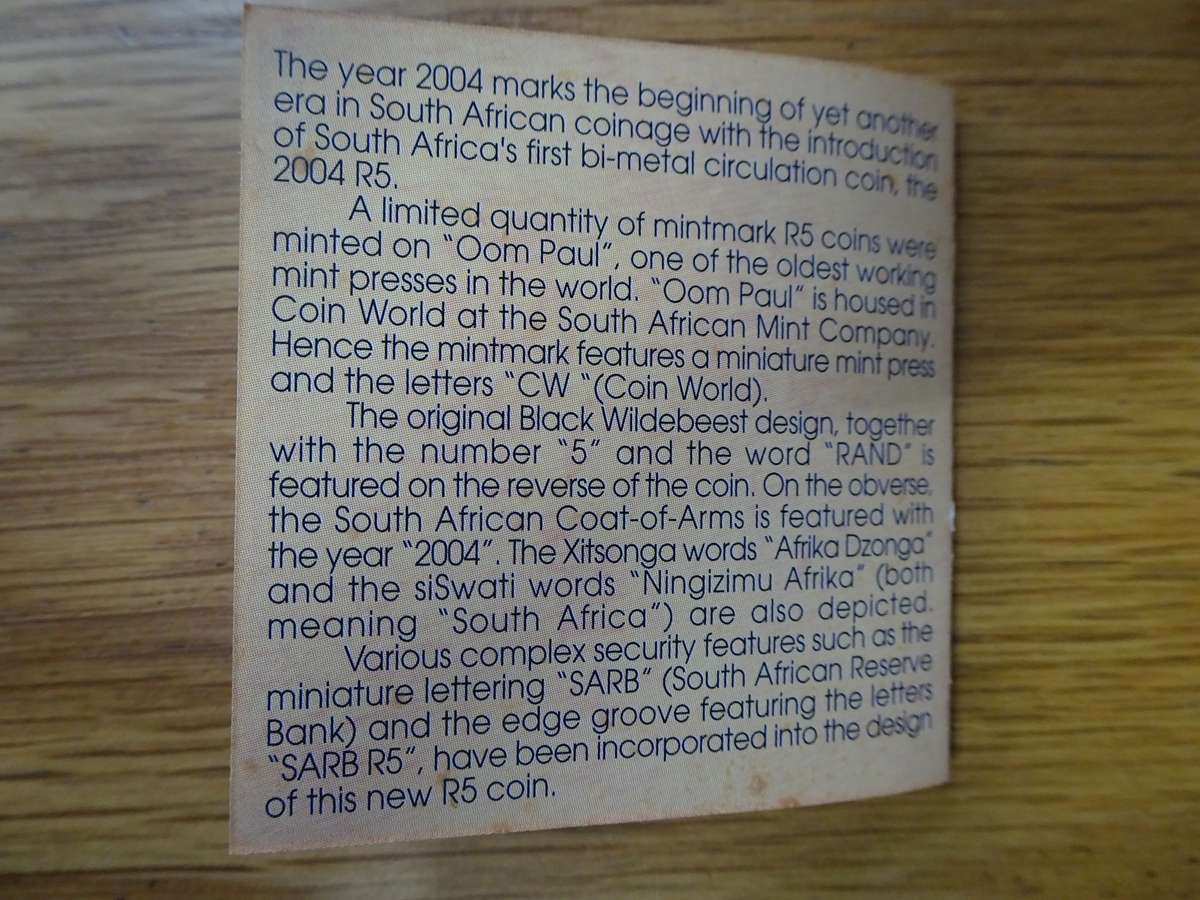 The year 2004 marks the beginning of yet another
era in South African coinage with the introduction
of South Africa's first bi-metal circulation coin, the
2004 R5.
A limited quantity of mintmark R5 coins were
minted on “Oom Paul”, one of the oldest working
mint presses in the world. “Oom Paul” is housed in
Coin World at the South African Mint Company.
Hence the mintmark features a miniature mint press
and the letters “CW “(Coin World).
The original Black Wildebeest design, together
with the number “5” and the word “RAND” is
featured on the reverse of the coin. On the obverse,
the South African Coat-of-Arms is featured with
the year “2004”. The Xitsonga words “Afrika Dzonga”
and the siSwati words “Ningizimu Afrika” (both
meaning “South Africa”) are also depicted.
Various complex security features such as the
miniature lettering “SARB” (South African Reserve
Bank) and the edge groove featuring the letters
“SARB R5”, have been incorporated into the design
of this new R5 coin.